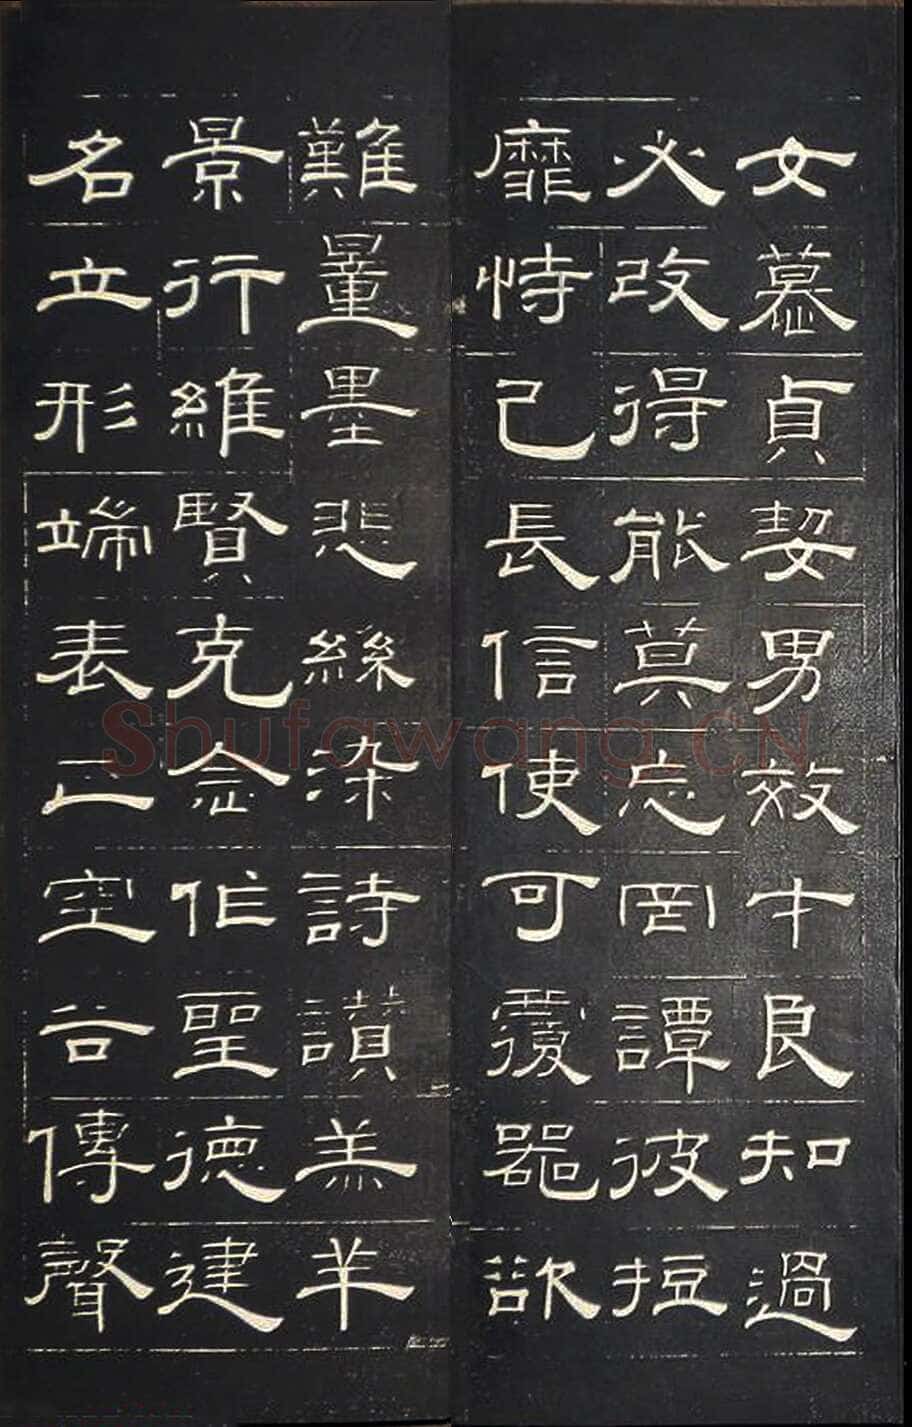 女慕貞㛃男效才良知過
必改得能莫忘罔譚彼短
靡恃己長信使可覆器欲
難量墨悲絲染詩讃羔羊
景行維賢克念作聖德建
名立形端表正空谷傳聲
Shufawang.CN